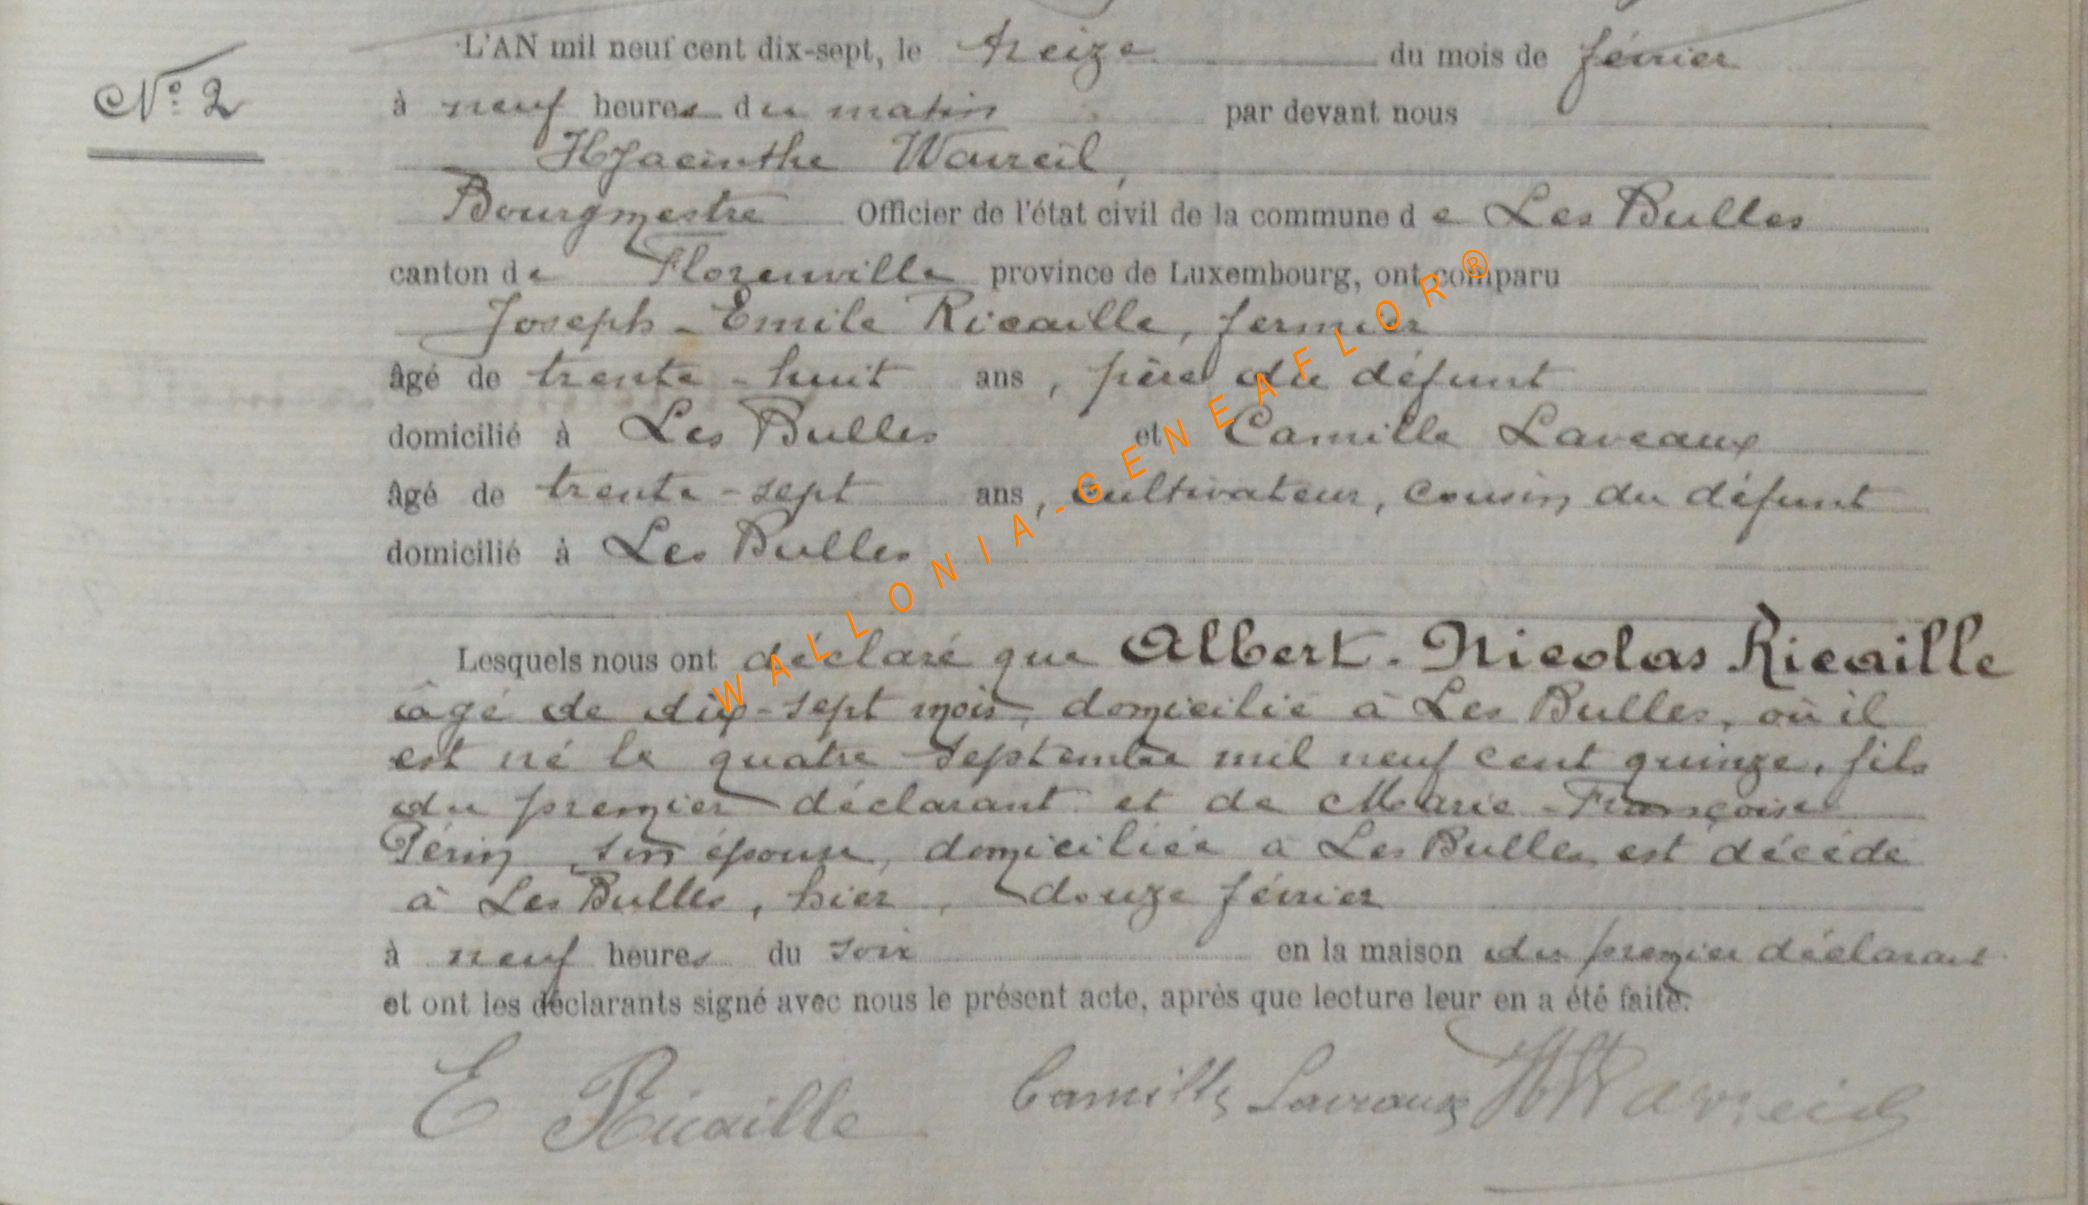 L'AN mil neuf cent dix-sept, le treize du mois de février
N° 2
à neuf heures du matin par devant nous
Hyacinthe Waireil,
Bourgmestre Officier de l'état civil de la commune de Les Bulles
canton de Florenville province de Luxembourg, ont comparu
Joseph-Emile Ricaille, fermier
âgé de trente-huit ans, père du défunt
domicilié à Les Bulles et Camille Laveaux
âgé de trente-sept ans, cultivateur, cousin du défunt
domicilié à Les Bulles
WALLONIA-GENEAFLOR®
Lesquels nous ont déclaré que Albert-Nicolas Ricaille
âgé de dix-sept mois, domicilié à Les Bulles, où il
est né le quatre septembre mil neuf cent quinze, fils
du premier déclarant et de Marie-Françoise
Périn, son épouse, domiciliée à Les Bulles, est décédé
à Les Bulles, hier, douze février
à neuf heures du soir en la maison du premier déclarant
et ont les déclarants signé avec nous le présent acte, après que lecture leur en a été faite.
E Ricaille Camille Laveaux